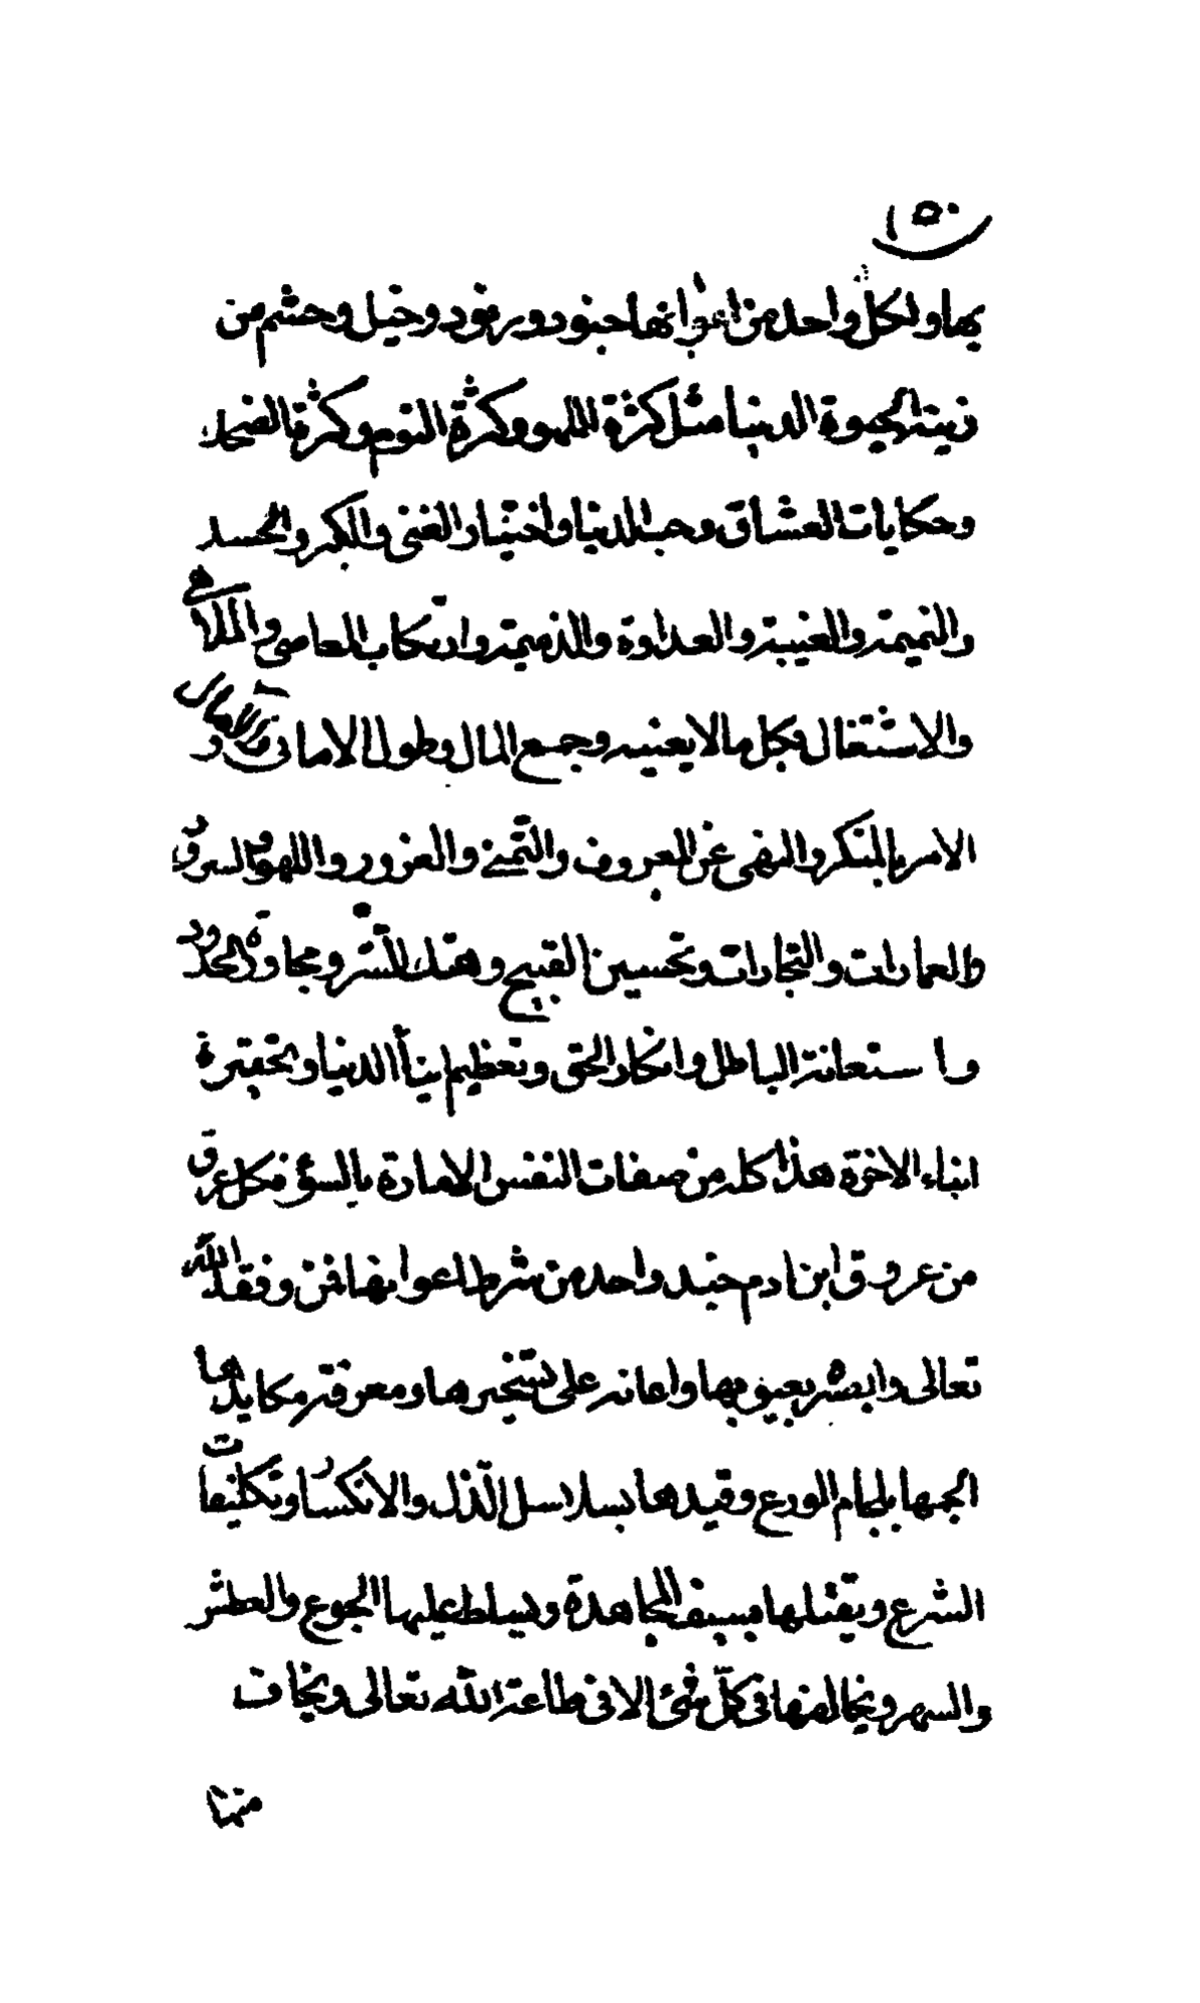 ١٥٠
بها ولكل واحد من اعوانها جنود ورقود وخيل وحشم من
زينة الحيوة الدنيا مثل كثرة اللهو وكثرة النوم وكثرة الضحك
وحكايات العشاق وحب الدنيا واختيار الغنى والكبر والحسد
والنميمة والغيبة والعداوة والذميمة وارتكاب المعاصى والملاهى
والاشتغال بكل ما لا يعنيه وجمع المال وطول الامانى والامال و
الامر بالمنكر والنهى عن المعروف والتمنى والغرور واللهو والسرور
والعمارات والتجارات وتحسين القبيح وهتك الستر ومجاوزة الحدود
واستعانة الباطل وانكار الحق وتعظيم ابنأ الدنيا وتحقيرة
ابناء الاخرة هذا كله من صفات النفس الامارة بالسؤ فكل عرق
من عروق ابن ادم جنيد واحد من شرط اعوانها فمن وفقه الله
تعالى وابصره بعيوبها واعانه على تسخيرها ومعرفة مكايدها
الجمها بلجام الورع وقيدها بسلاسل الذل والانكسار وتكليفات
الشرع ويقتلها بسيف المجاهدة ويسلط عليها الجوع والعطش
والسهر ويخالفها فى كل شئ الا فى طاعة الله تعالى ويخاف
منها